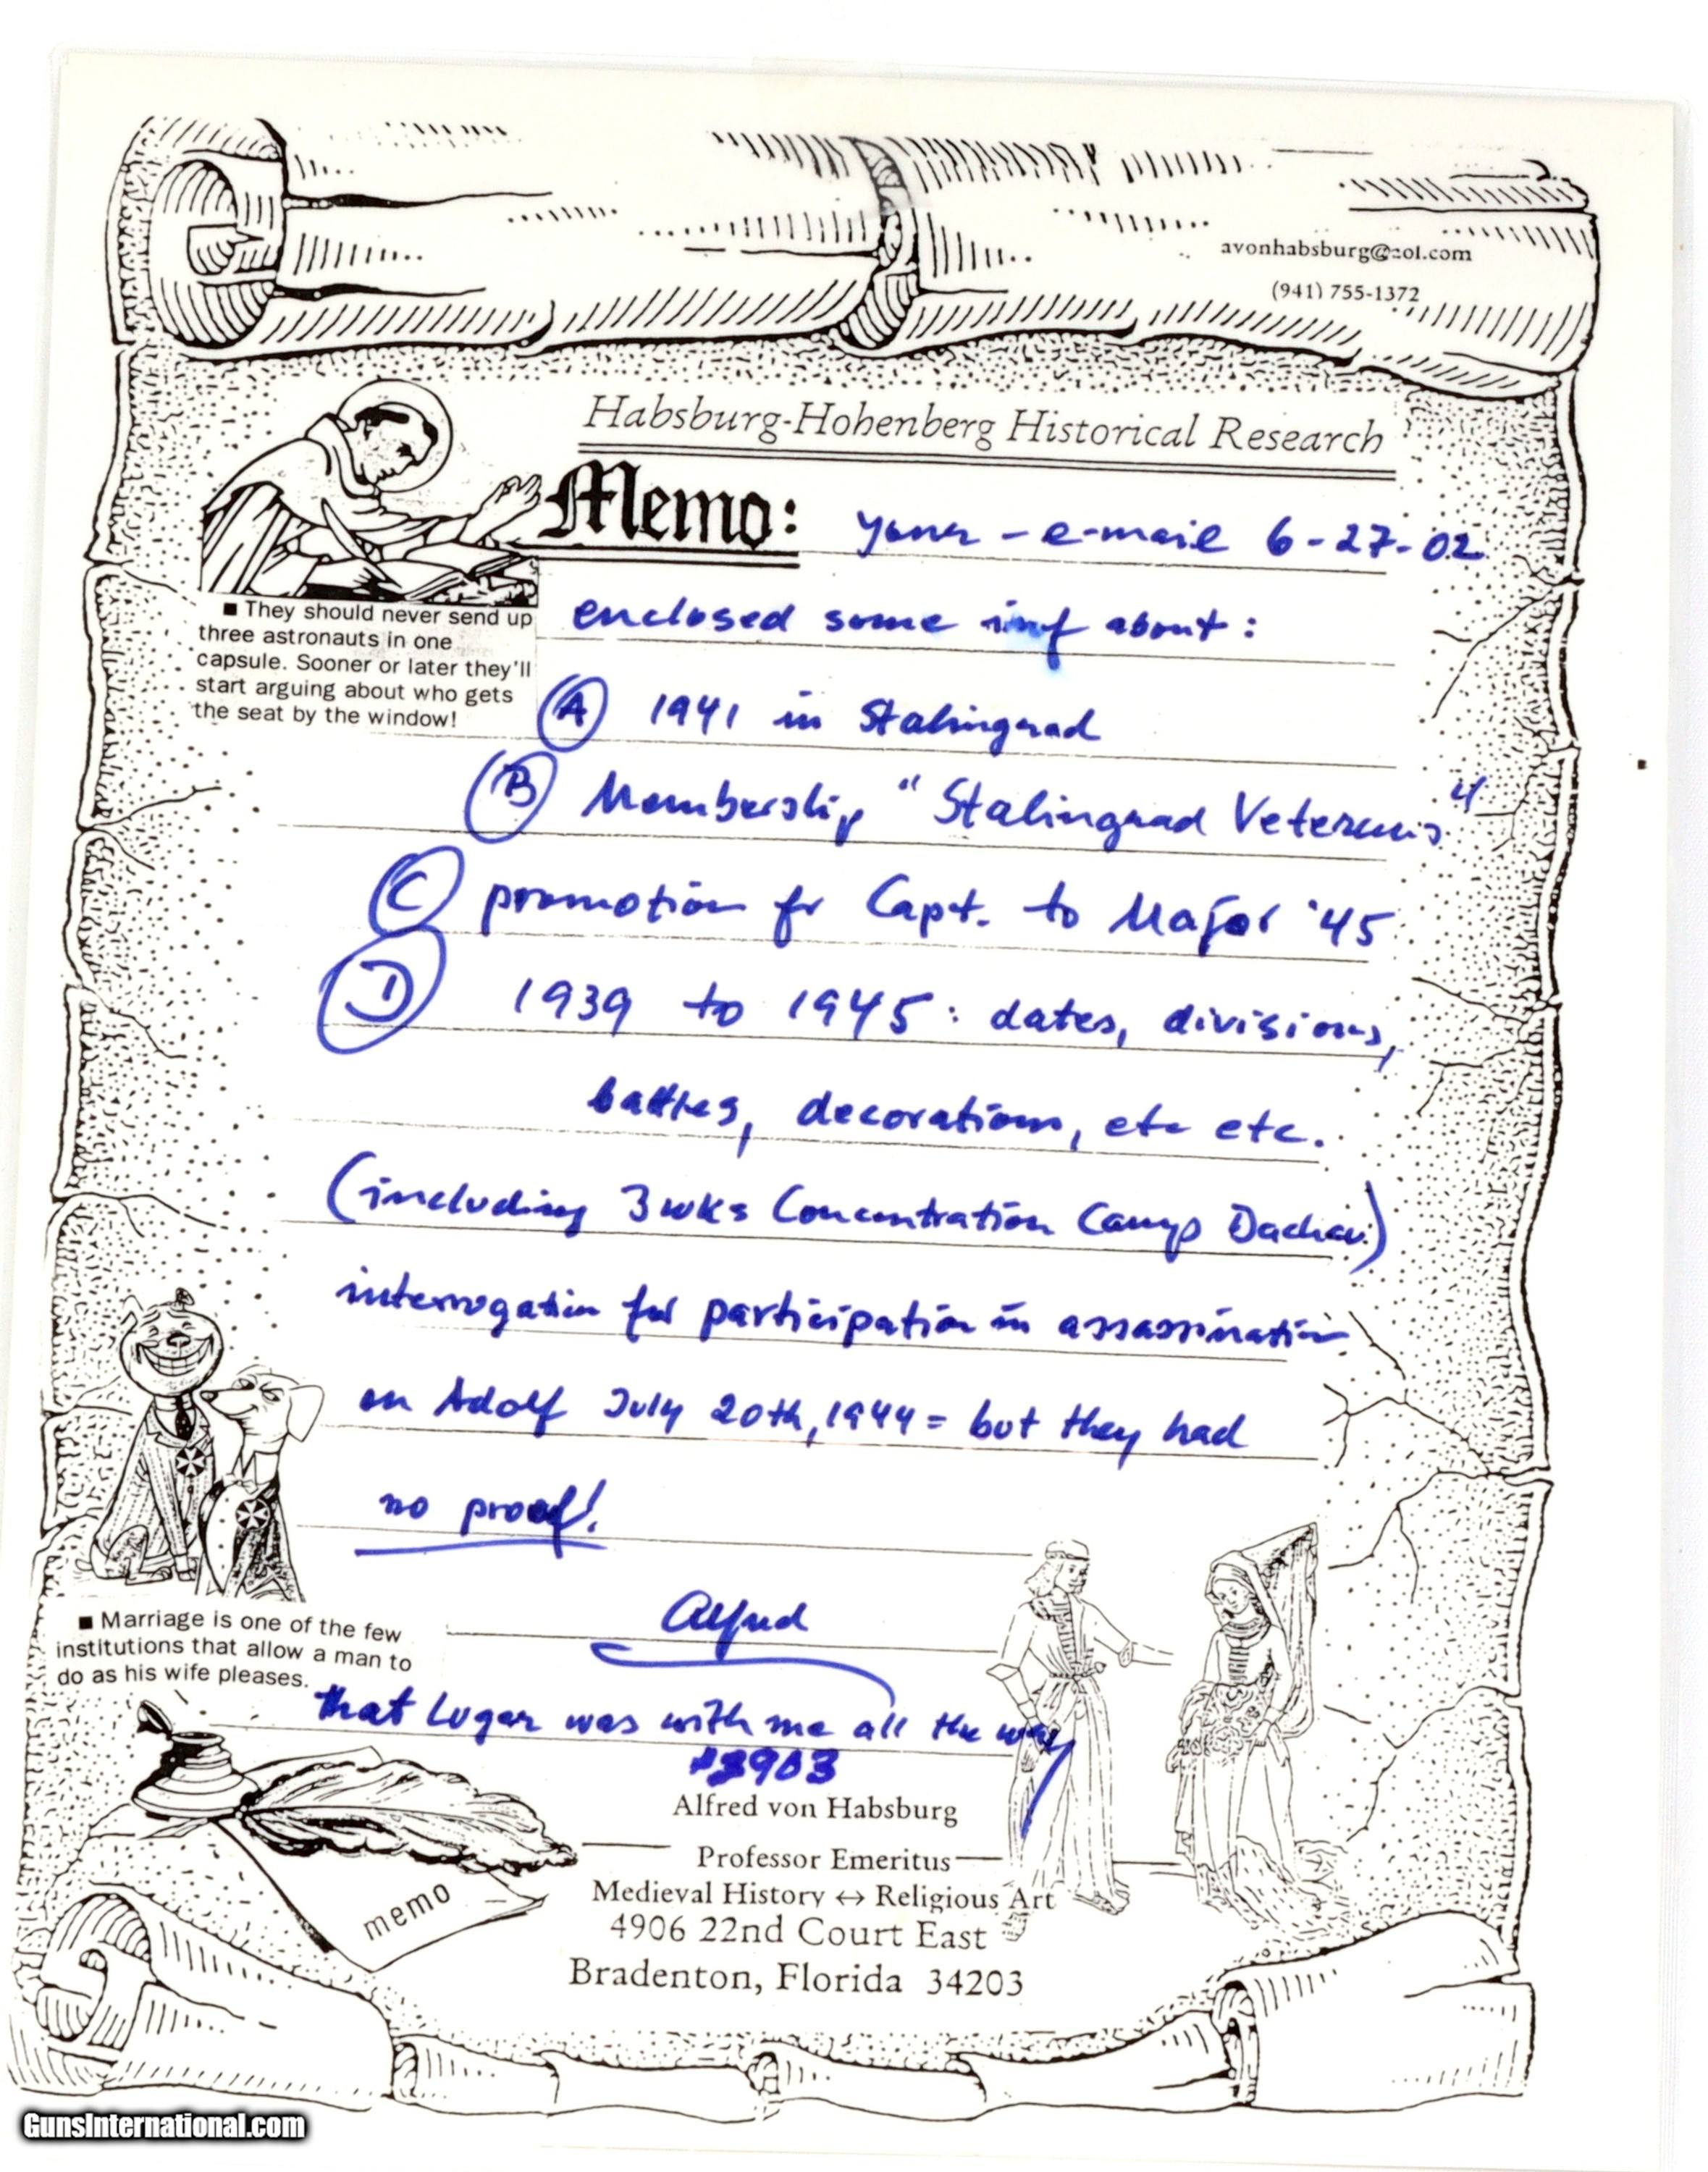 avonhabsburg@aol.com
(941) 755-1372
Habsburg-Hohenberg Historical Research
Memo: your - e-mail 6-27-02
■ They should never send up
three astronauts in one
capsule. Sooner or later they'll
start arguing about who gets
the seat by the window!
enclosed some inf about:
(A) 1941 in Stalingrad
(B) Membership "Stalingrad Veterans"
(C) promotion fr Capt. to Major '45
(D) 1939 to 1945: dates, divisions,
battles, decorations, etc etc.
(including 3 wks Concentration Camp Dachau)
interrogation for participation in assassination
on Adolf July 20th, 1944 = but they had
no proof!
Alfred
■ Marriage is one of the few
institutions that allow a man to
do as his wife pleases.
that Luger was with me all the way
3903
Alfred von Habsburg
Professor Emeritus
Medieval History ↔ Religious Art
4906 22nd Court East
Bradenton, Florida 34203
memo
GunsInternational.com